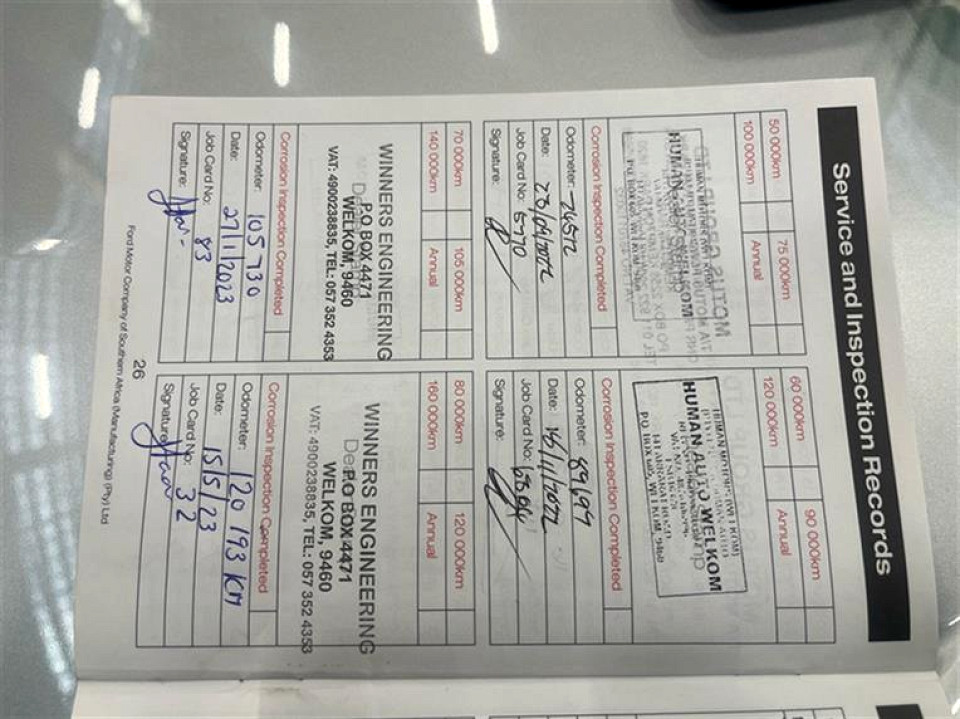 Service and Inspection Records
50 000km
75 000km
100 000km
Annual
HUMAN AUTO WELKOM
Corrosion Inspection Completed
Odometer: 74572
Date: 28/09/2022
Job Card No: 5770
Signature:
60 000km
90 000km
120 000km
Annual
HUMAN AUTO WELKOM
P.O BOX 605, WELKOM, 9460
Corrosion Inspection Completed
Odometer: 89,699
Date: 16/11/2022
Job Card No:
Signature:
70 000km
105 000km
140 000km
Annual
WINNERS ENGINEERING
P.O BOX 4471
WELKOM, 9460
VAT: 4900238835, TEL: 057 352 4353
Corrosion Inspection Completed
Odometer: 105 730
Date: 27/1/2023
Job Card No: 83
Signature:
80 000km
120 000km
160 000km
Annual
WINNERS ENGINEERING
P.O BOX 4471
WELKOM, 9460
VAT: 4900238835, TEL: 057 352 4353
Corrosion Inspection Completed
Odometer: 120 193 KM
Date: 15/5/23
Job Card No: 32
Signature:
26
Ford Motor Company of Southern Africa (Manufacturing) (Pty) Ltd